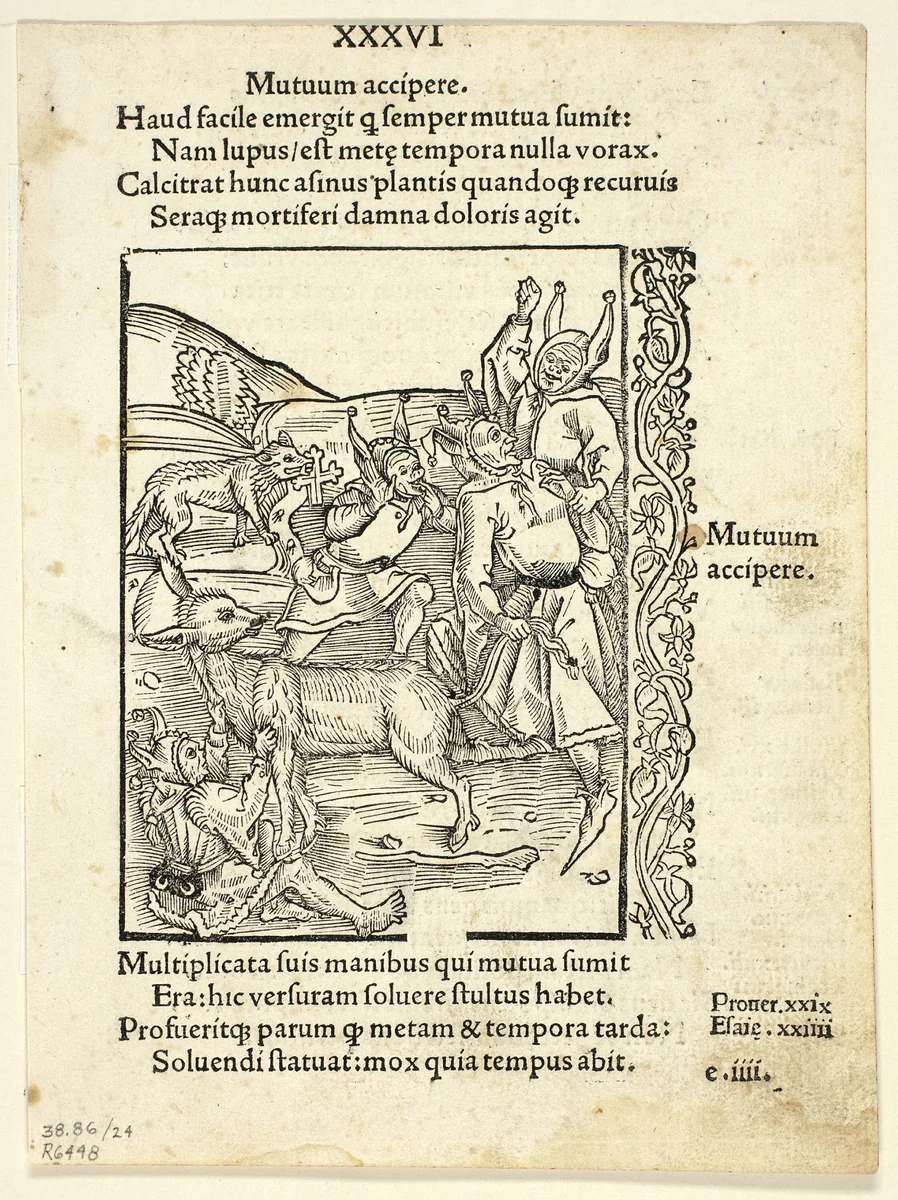 XXXVI
Mutuum accipere.
Haud facile emergit ꝗ ſemper mutua ſumit:
Nam lupus/eſt metę tempora nulla vorax.
Calcitrat hunc aſinus plantis quandoꝗꝫ recuruis
Seraꝗꝫ mortiferi damna doloris agit.
Mutuum
accipere.
Multiplicata ſuis manibus qui mutua ſumit
Era: hic verſuram ſoluere ſtultus habet.
Profueritꝗꝫ parum ꝙ metam & tempora tarda:
Soluendi ſtatuat: mox quia tempus abit.
Prouer. xxix
Eſaię. xxiiii
e.iiii.
38.86/24
R6448